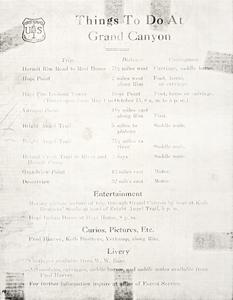 US
Things To Do At
Grand Canyon
Trip Distance Conveyance
Hermit Rim Road to Rest House 7½ miles west Carriage, saddle horse.
Hopi Point 2 miles west along Rim. Foot, horse, or carriage.
Hopi Fire Lookout Tower Hopi Point Foot, horse or carriage.
(Threatening days May 1 to October 15, 8 a.m. to 5 p.m.)
Yavapai Point along Rim. Foot.
Bright Angel Trail 5 miles to plateau Saddle mule.
Bright Angel Trail 7½ miles to River Saddle mule.
Hermit Creek Trail to River and days Saddle mule.
Grandview Point 13 miles east Motor.
Desertview 32 miles east Motor.
Entertainment
Moving picture lecture of trip through Grand Canyon by boat at Kolb
Brothers' Studio at head of Bright Angel Trail, 8 p.m.
Hopi Indian dance at Hopi House, 5 p.m.
Curios, Pictures, Etc.
Fred Harvey, Kolb Brothers, Verkamp, along Rim.
Livery
available from W. W. Bass.
Automobiles, carriages, saddle horses, and saddle mules available from
Fred Harvey.
For further information inquire at office of Forest Service.